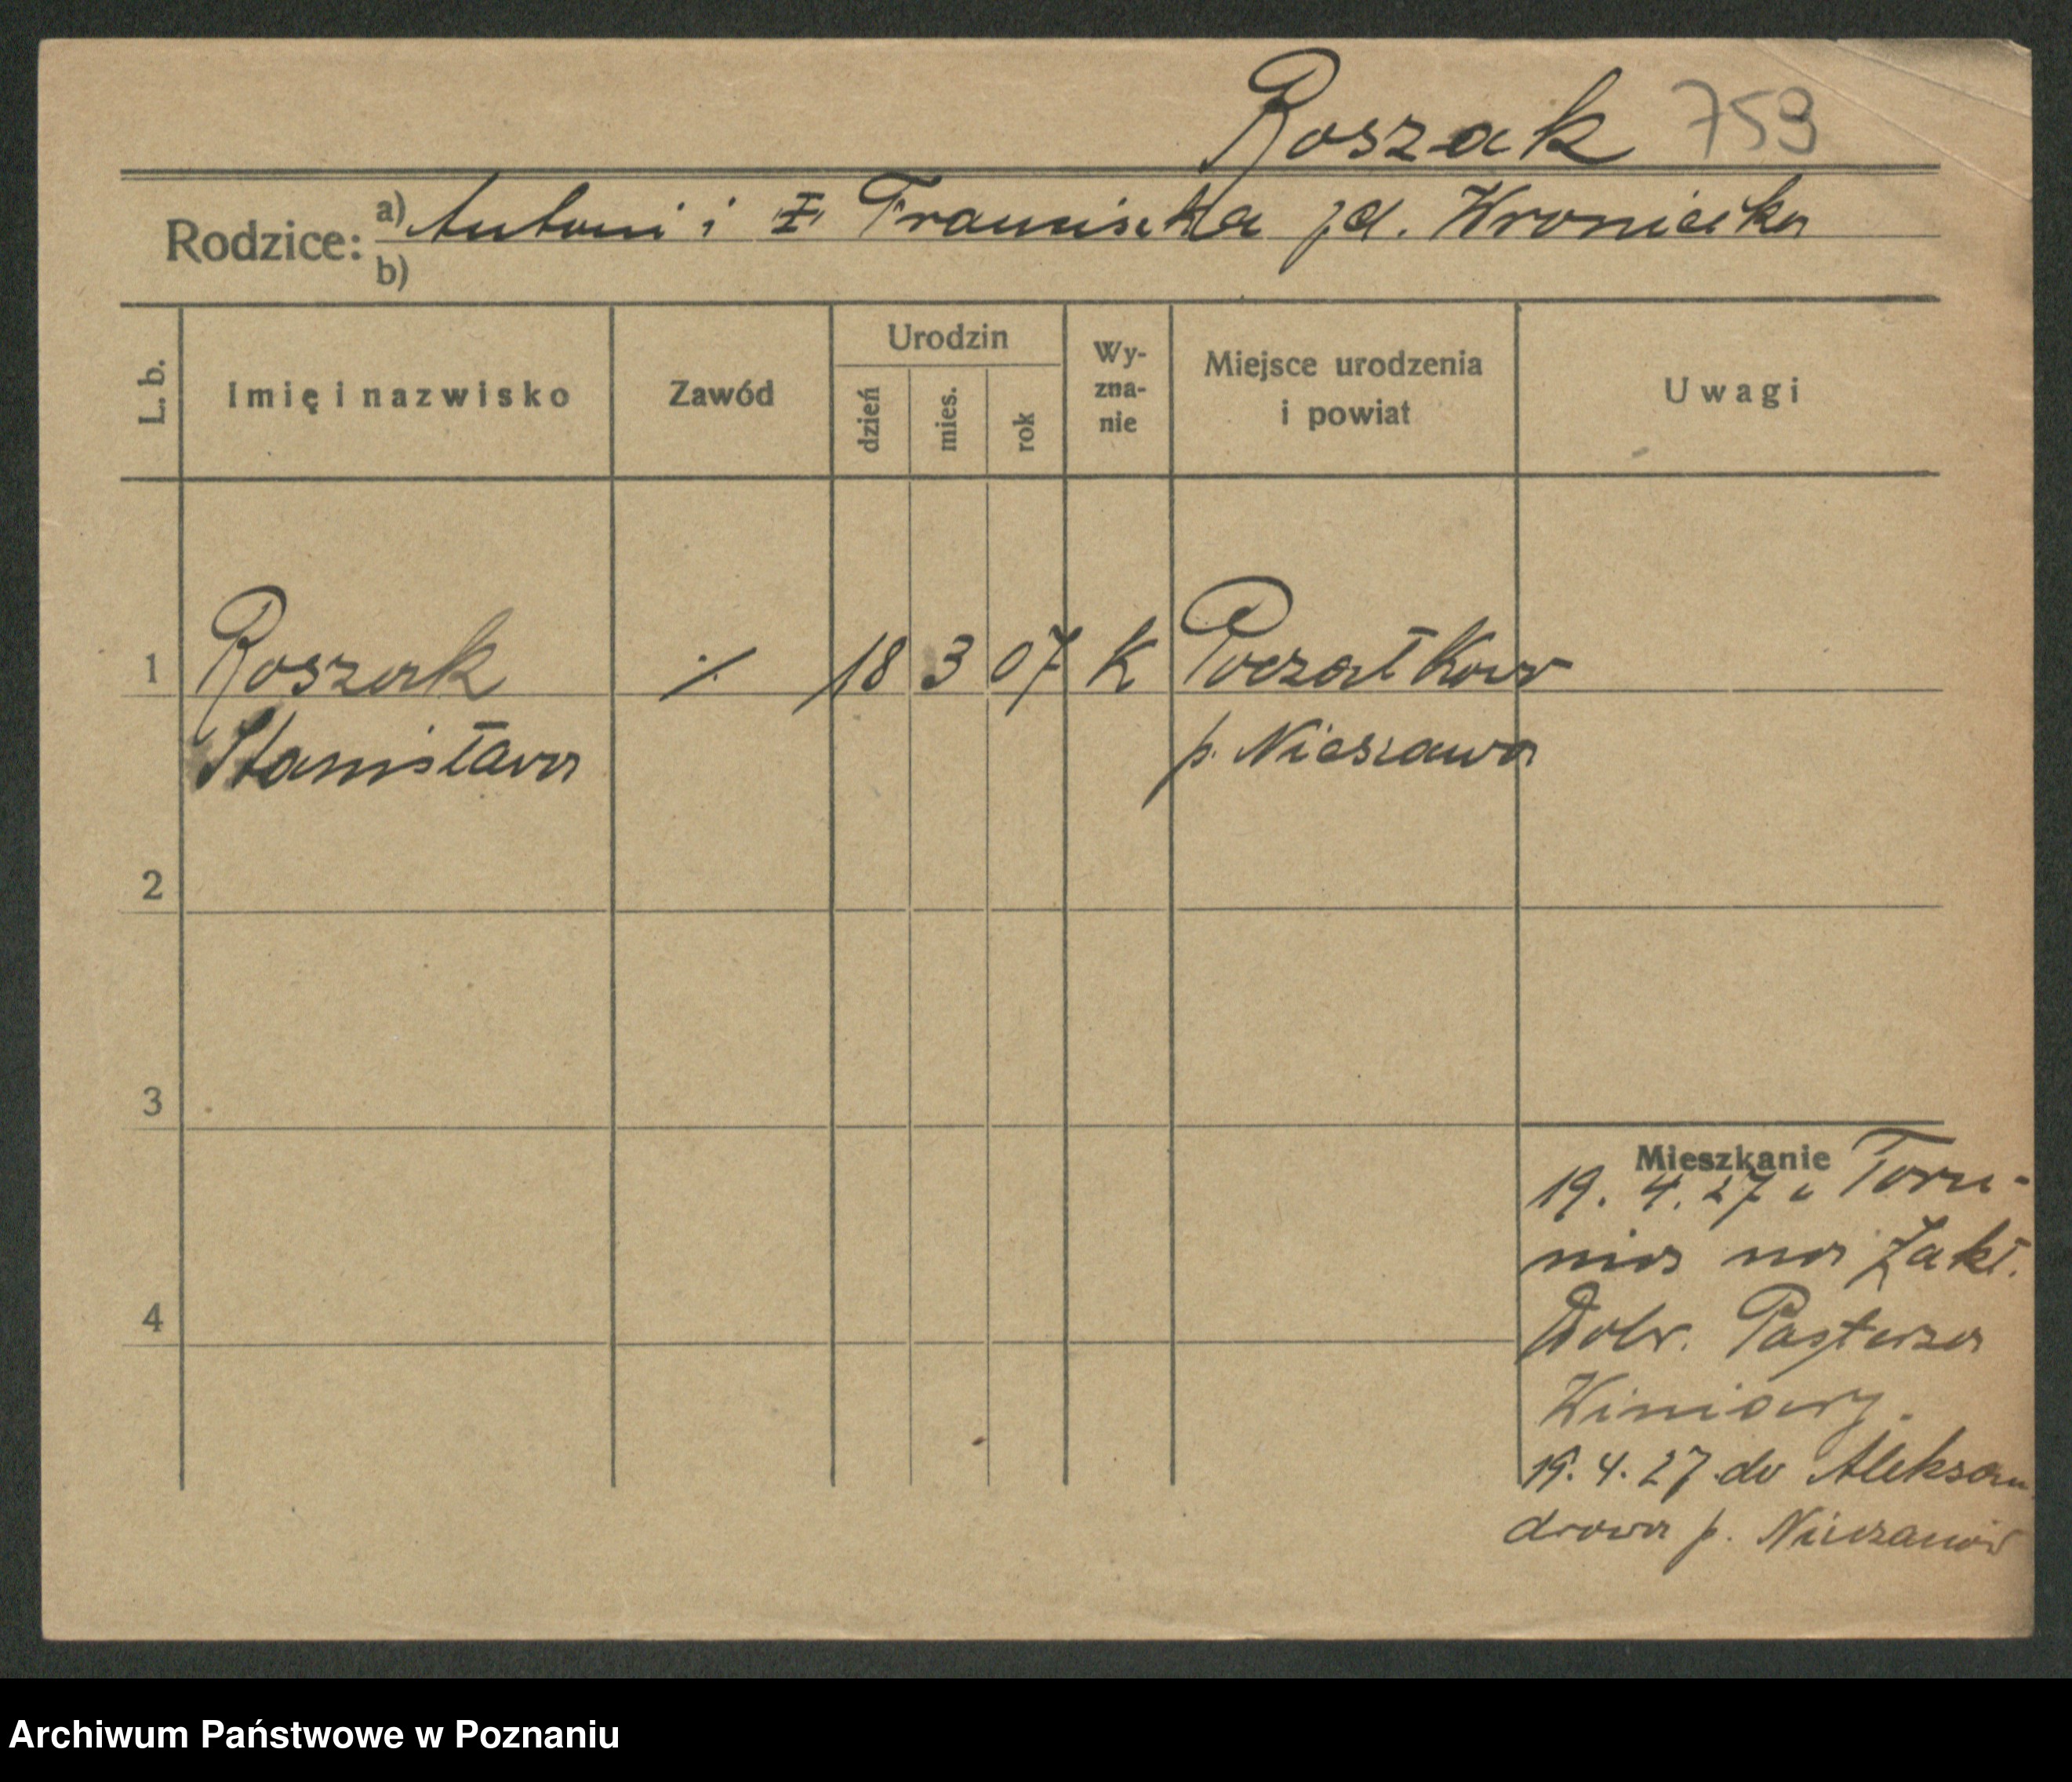 Roszak 759
Rodzice: a) Antoni i Franciszka zd. Wroniecka
b)
L. b. Imię i nazwisko Zawód Urodzin dzień mies. rok Wy-zna-nie Miejsce urodzenia i powiat Uwagi
1 Roszak ·/· 18 3 07 K Poczałkowo
Stanisława p. Nieszawa
2
3
Mieszkanie
19. 4. 27 z Toru-
nia na Zakł.
4
Dobr. Pasterza
Winiary.
19. 4. 27 do Aleksan
drowa p. Nieszawa
Archiwum Państwowe w Poznaniu